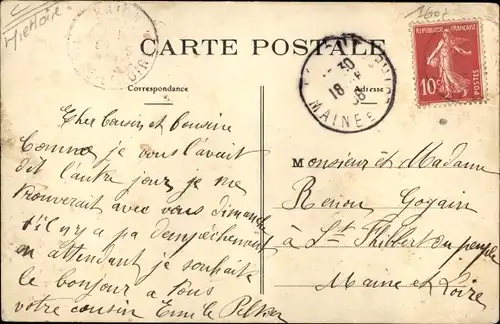 CARTE POSTALE
Correspondance
Adresse
RÉPUBLIQUE FRANÇAISE
10c
POSTES
30
18
08
MAINE E
Cher Cousin et Cousine
Comme je vous l'avait
dit l'autre jour je me
trouverait avec vous dimanche
s'il n'y a pa d'empéchement
en attendant je souhaite
le bonjour a tous
votre cousin Emile
Monsieur et Madame
Renou
à St
Maine et Loire